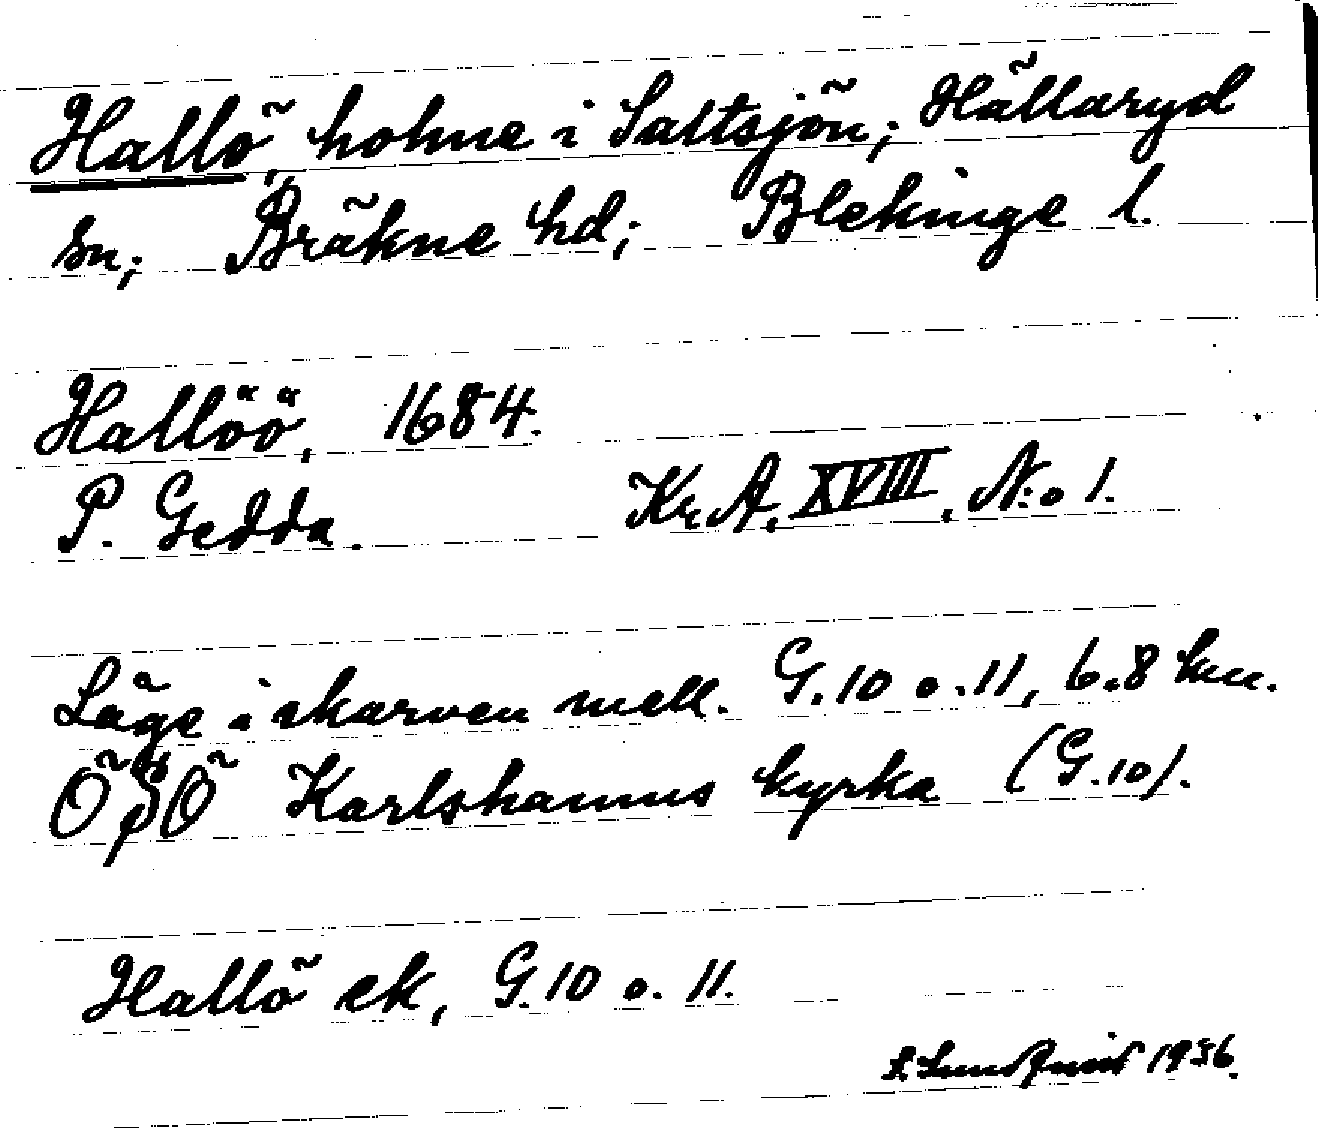 Hallö, holme i Saltsjön; Hällaryd
sn; Bräkne hd; Blekinge l.
Hallöö, 1684.
P. Gedda. Kr. A. XVIII. N:o 1.
Läge i skarven mell. G. 10 o. 11, 6.8 km.
ÖSÖ Karlshamns kyrka (G. 10).
Hallö ek, G. 10 o. 11.
1936.